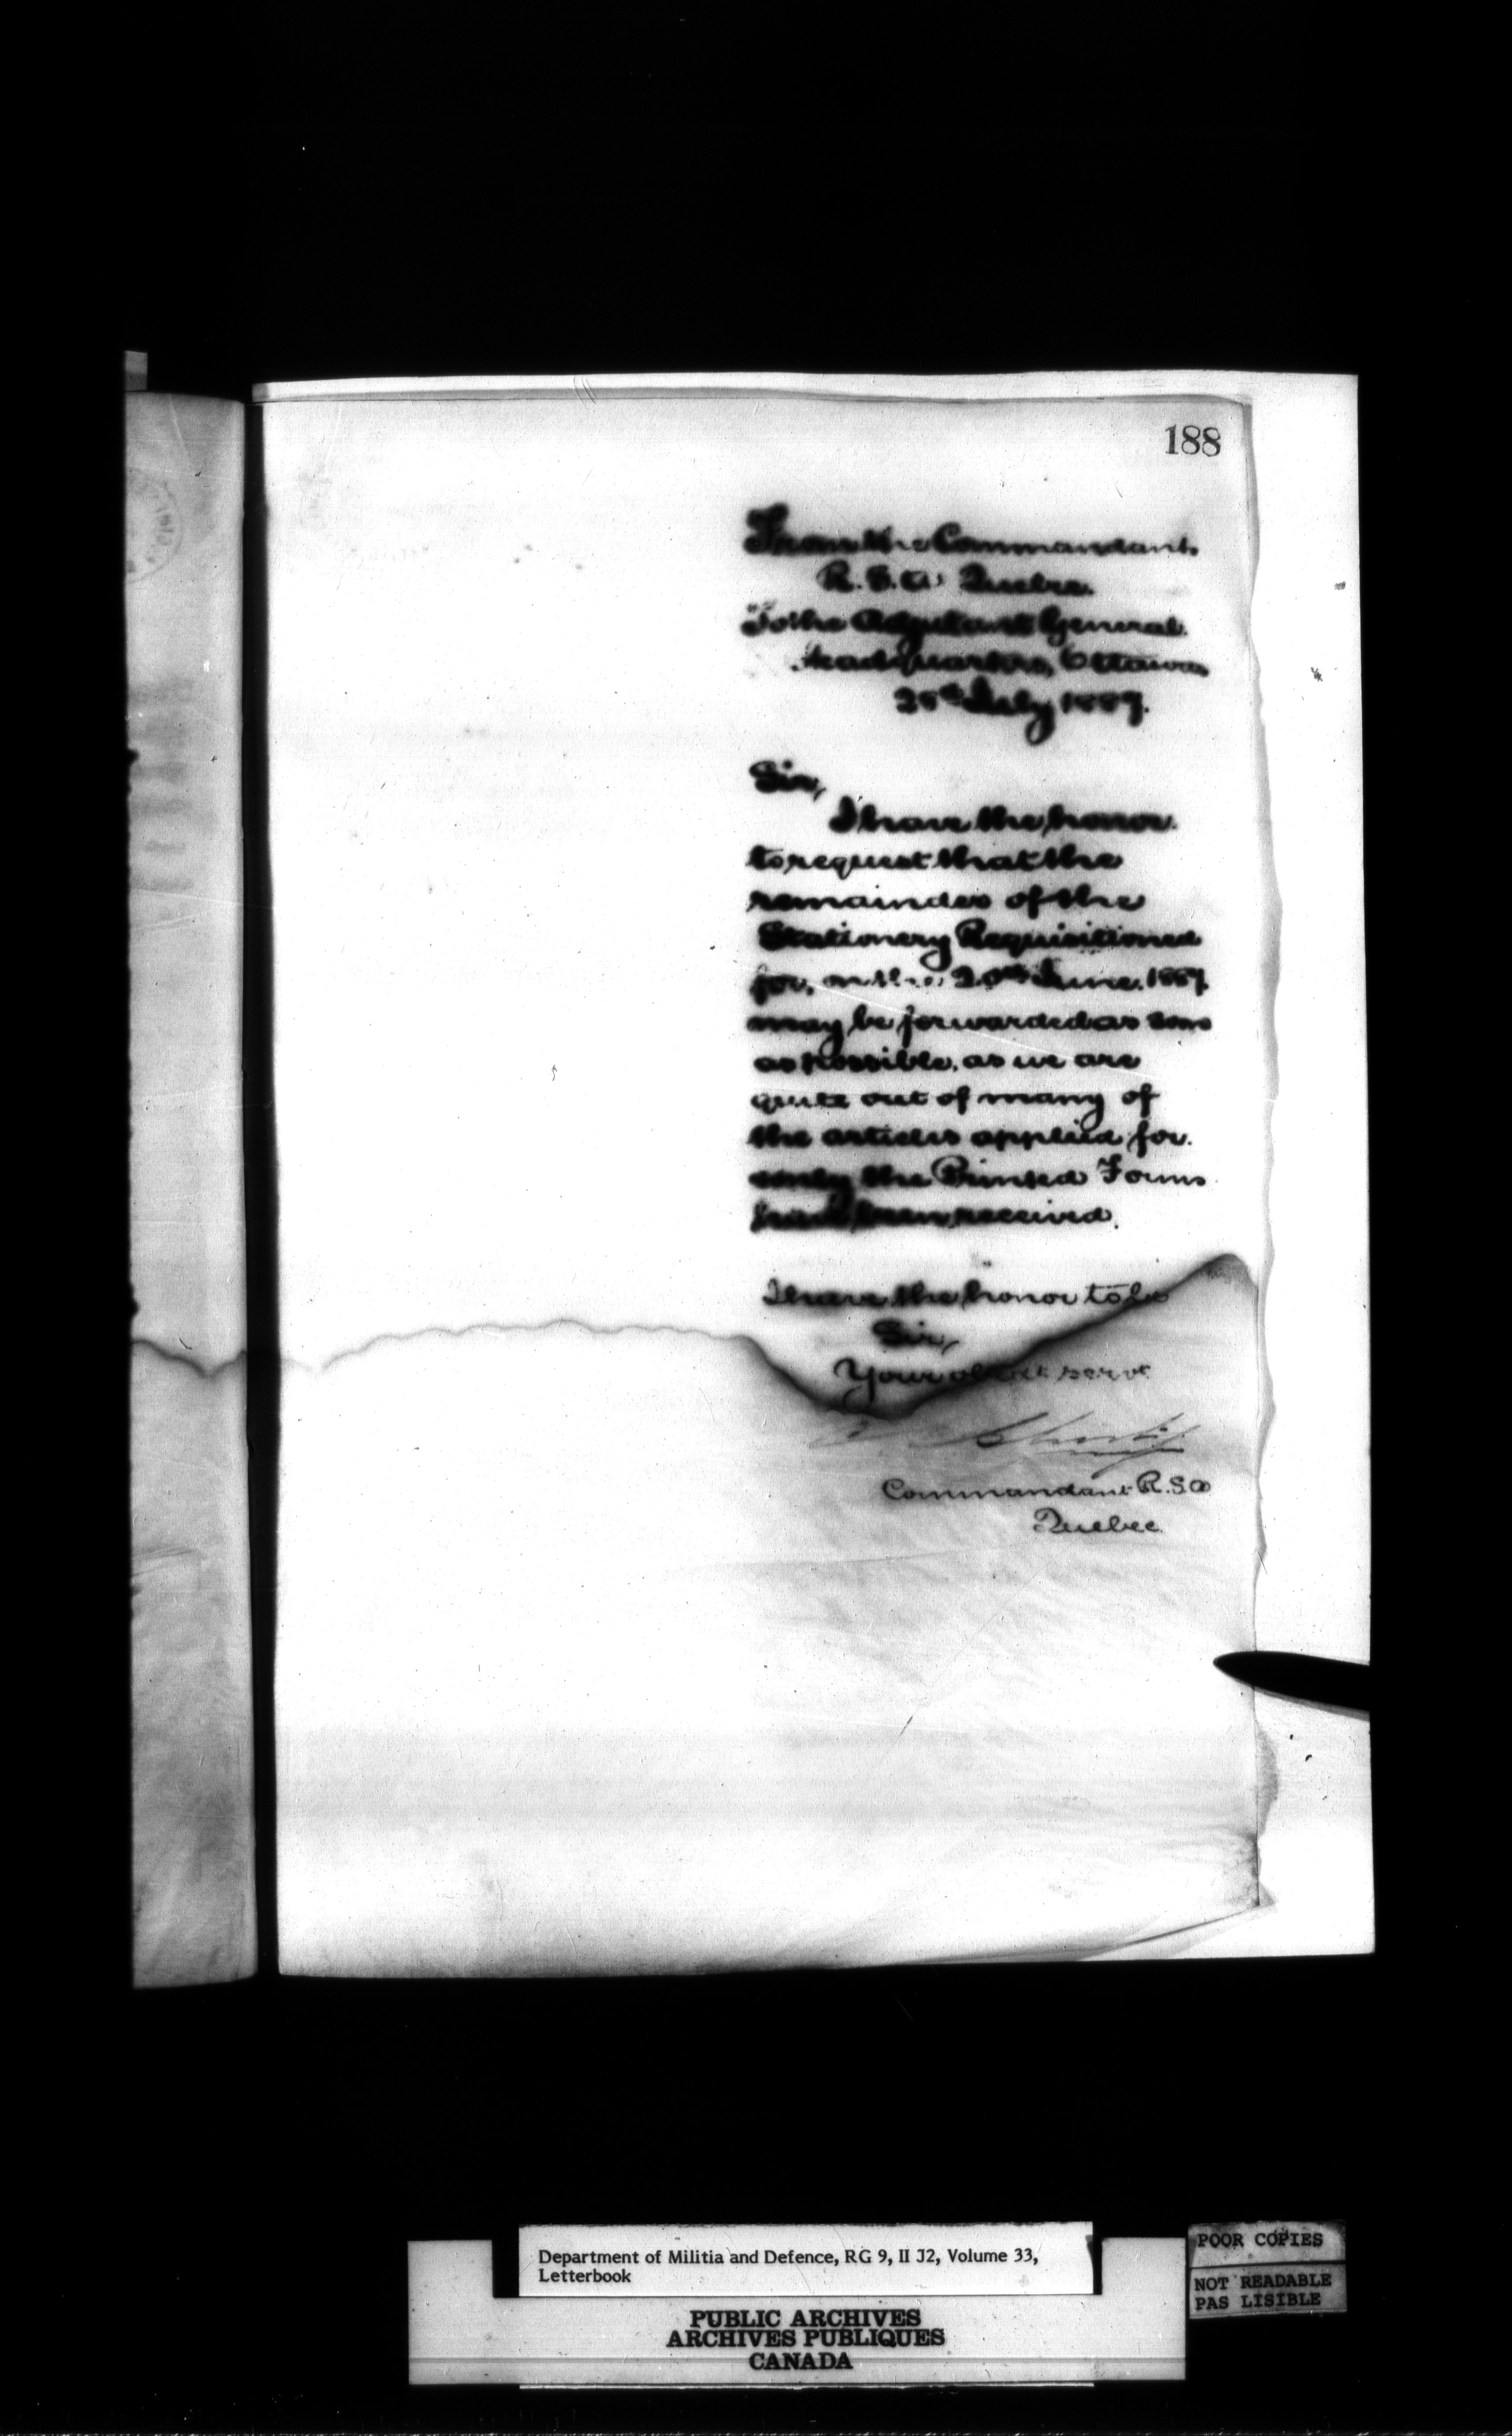 188
From the Commandant
R.S.A. Quebec
To the Adjutant General
Headquarters, Ottawa
July 1887.
Sir,
I have the honor
to request that the
remainder of the
Stationery Requisitioned
for, on the 20th June. 1887
may be forwarded as soon
as possible, as we are
quite out of many of
the articles applied for.
only the Printed Forms
have been received.
I have the honor to be
Sir,
Your obedt servt
Commandant R.S.A
Quebec
Department of Militia and Defence, RG 9, II J2, Volume 33,
Letterbook
PUBLIC ARCHIVES
ARCHIVES PUBLIQUES
CANADA
POOR COPIES
NOT READABLE
PAS LISIBLE